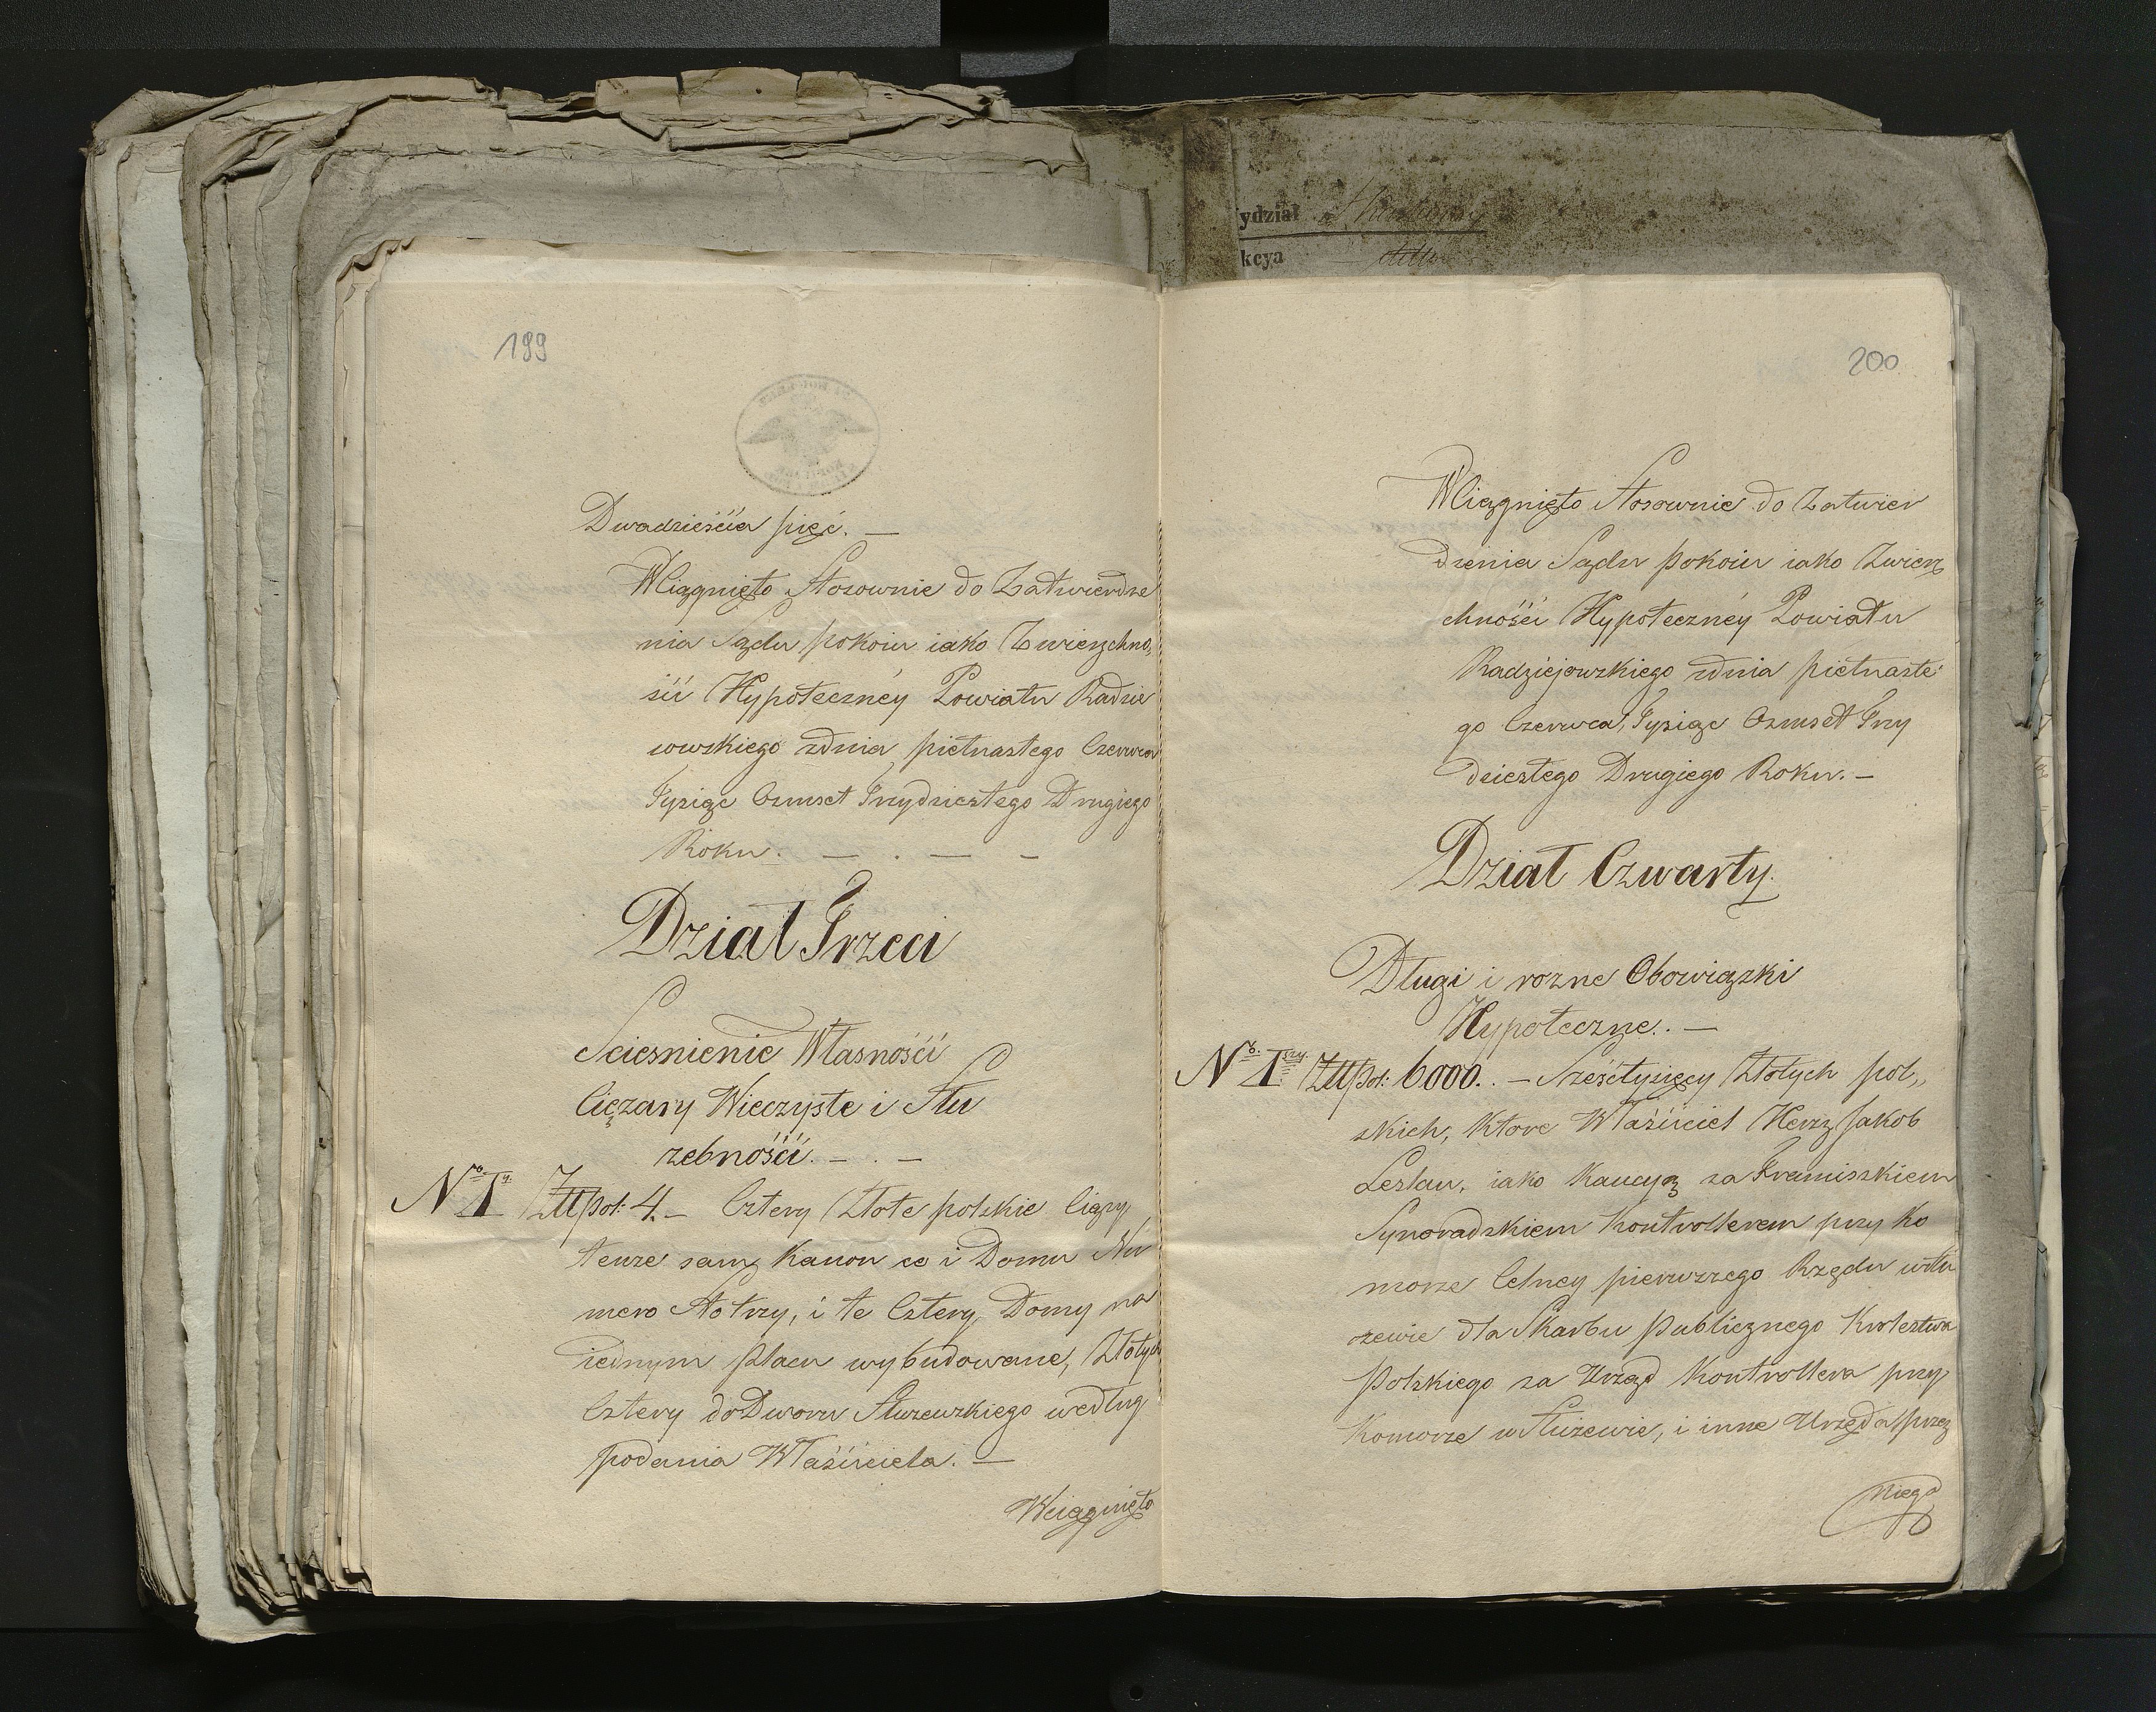 199
Dwadzieścia pięć. —
Wciągnięto Stosownie do Zatwierdze
nia Sądu pokoiu iako Zwierzchno,
ści Hypotecznéy Powiatu Radzie
iowskiego zdnia piętnastego Czerwca
Tysiąc Osmset Trzydziestego Drugiego
Roku. — . — –
Dział Trzeci
Sciesnienie Własności
Ciężary Wieczyste i Słu
żebności. – . –
No. I Złłpol: 4. – Cztery Złote polskie Ciąży
tenże sam Kanon co i Domu Nu
mero Sto trzy, i te Cztery Domy na
iednym placu wybudowane, Złotych
Cztery do Dworu Służewskiego według
podania Właściciela. —
Wciągnięto
ydział
kcya
200
Wciągnięto Stosownie do Zatwier
dzenia Sądu pokoiu iako Zwierz
chności Hypotecznéy Powiatu
Radziejowskiego zdnia piętnaste
go Czerwca, Tysiąc Osmset Trzy
dziestego Drugiego Roku. –
Dział Czwarty.
Długi i rozne Obowiązki
Hypoteczne. . —
No. I szy. Złłpol: 6000. . – Sześćtysięcy Złotych pol„
skich, ktore Właściciel Herz Jakob
Leslau, iako Kaucyą za Franciszkiem
Synoradzkiem Kontrollerem przy Ko
morze Celney pierwszego Rzędu w Słu
żewie dla Skarbu Publicznego Krolestwa
Polskiego za Urząd Kontrollera przy
Komorze w Służewie, i inne Urzęda przez
Niego